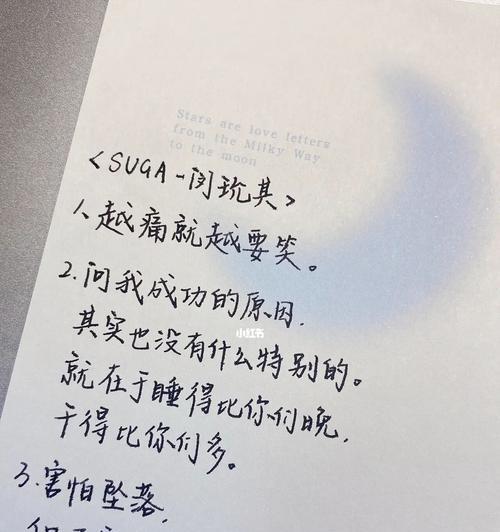 Stars are love letters
from the Milky Way
to the moon
<SUGA-闵玧其>
1、越痛就越要笑。
2.问我成功的原因,
其实也没有什么特别的。
小红书
就在于睡得比你们晚,
干得比你们多。
3.害怕坠落,